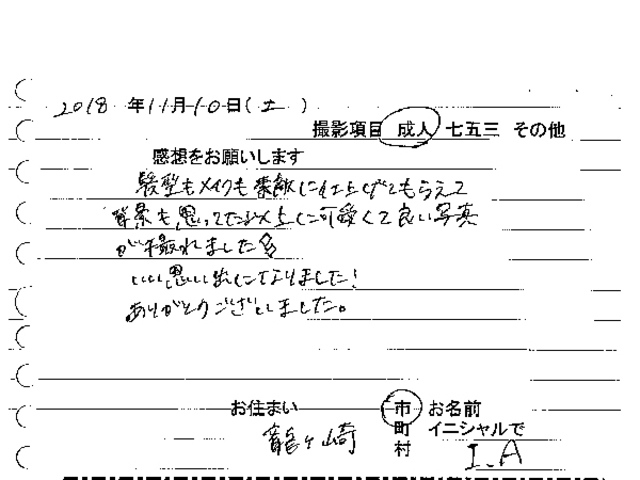 2018 年11月10日(土)
撮影項目 成人 七五三 その他
感想をお願いします
髪型もメイクも素敵に仕上げてもらえて
背景も思ってた以上に可愛くて良い写真
が撮れました
いい思い出になりました!
ありがとうございました。
お住まい 龍ヶ崎 市 町 村
お名前 イニシャルで I.A